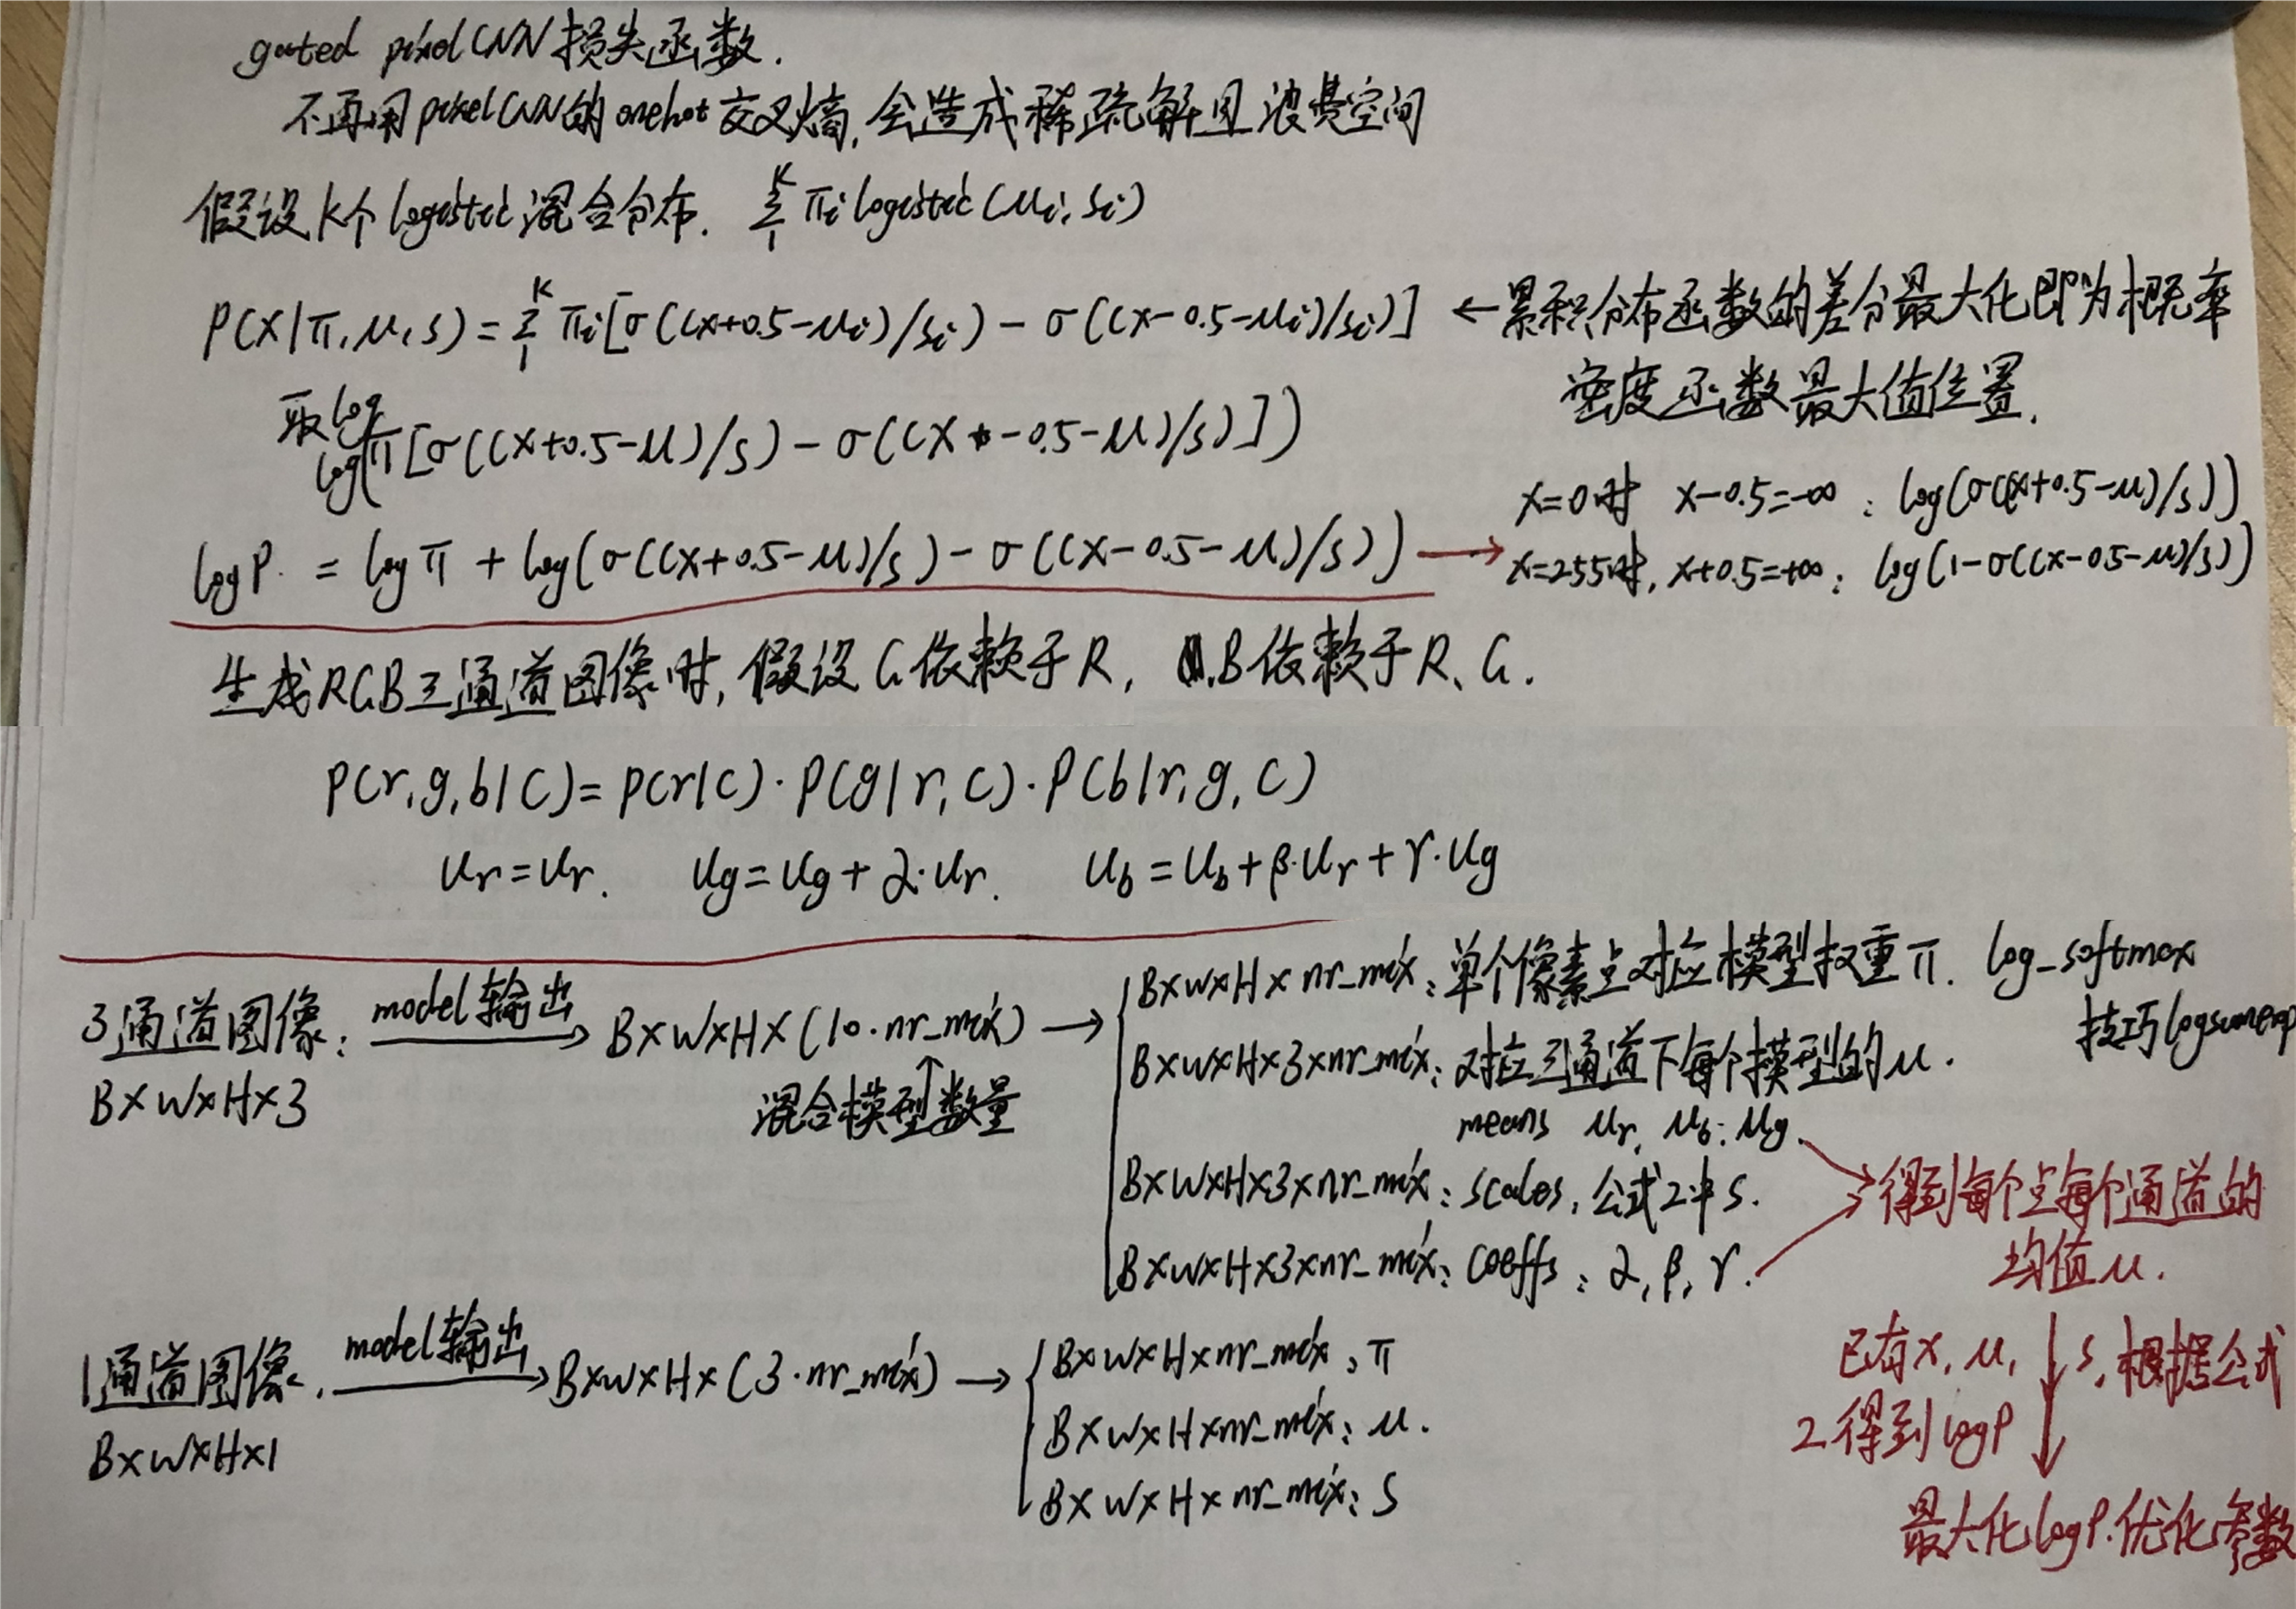 gated pixelCNN 损失函数.
不再用pixelCNN的onehot交叉熵,会造成稀疏解且浪费空间
假设K个logistic混合分布. Σ₁ᴷ πi logistic(μi, si)
P(x|π,μ,s) = Σ₁ᴷ πi[σ((x+0.5-μi)/si) - σ((x-0.5-μi)/si)] ←累积分布函数的差分最大化即为概率
密度函数最大值位置.
取log
log(π[σ((x+0.5-μ)/s) - σ((x-0.5-μ)/s)])
x=0时 x-0.5=-∞ : log(σ((x+0.5-μ)/s))
logP. = logπ + log(σ((x+0.5-μ)/s) - σ((x-0.5-μ)/s)) → x=255时, x+0.5=+∞ : log(1-σ((x-0.5-μ)/s))
生成RGB三通道图像时, 假设G依赖于R, B依赖于R、G.
P(r,g,b|C) = P(r|C)·P(g|r,C)·P(b|r,g,C)
μr=μr. μg=μg+α·μr. μb=μb+β·μr+γ·μg
3通道图像: model输出 → B×W×H×(10·nr_mix) → B×W×H×nr_mix: 单个像素点对应模型权重π. log_softmax
技巧logsumexp
B×W×H×3
混合模型数量
B×W×H×3×nr_mix: 对应三通道下每个模型的μ.
means μr, μb: μg.
B×W×H×3×nr_mix: scales, 公式2中s.
B×W×H×3×nr_mix: coeffs : α, β, γ. → 得到每个点每个通道的
均值μ.
1通道图像. model输出 → B×W×H×(3·nr_mix) → B×W×H×nr_mix, π
B×W×H×1
B×W×H×nr_mix: μ.
B×W×H×nr_mix: s
已有x, μ, s,根据公式
2得到logP
最大化logP.优化参数